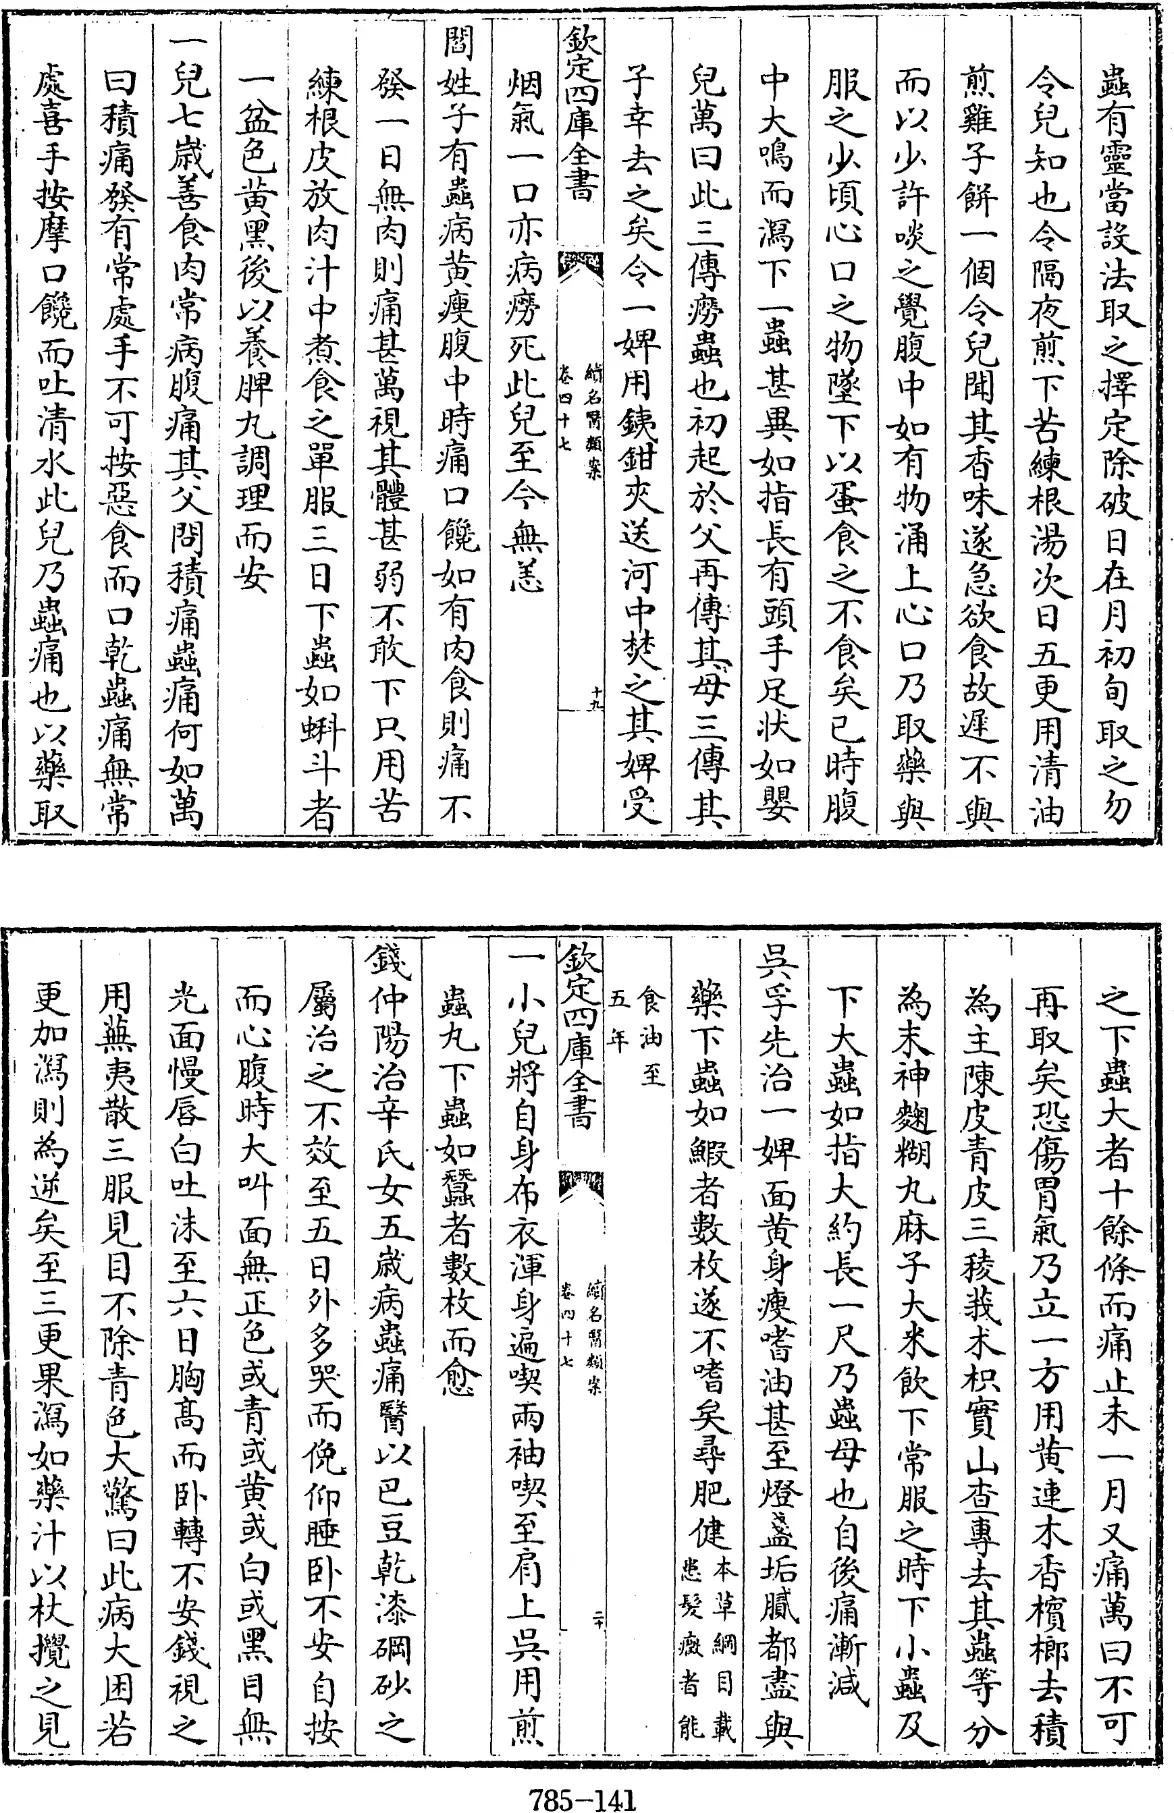 蟲有靈當設法取之擇定除破日在月初旬取之勿
令兒知也令隔夜煎下苦練根湯次日五更用清油
煎雞子餅一個令兒聞其香味遂急欲食故遲不與
而以少許啖之覺腹中如有物涌上心口乃取藥與
服之少頃心口之物墜下以蛋食之不食矣已時腹
中大鳴而瀉下一蟲甚異如指長有頭手足狀如嬰
兒萬曰此三傳癆蟲也初起於父再傳其母三傳其
子幸去之矣令一婢用鐵鉗夾送河中焚之其婢受
欽定四庫全書
續名醫類案
卷四十七
十九
烟氣一口亦病癆死此兒至今無恙
閻姓子有蟲病黄瘦腹中時痛口饞如有肉食則痛不
發一日無肉則痛甚萬視其體甚弱不敢下只用苦
練根皮放肉汁中煮食之單服三日下蟲如蝌斗者
一盆色黄黑後以養脾丸調理而安
一兒七歲善食肉常病腹痛其父問積痛蟲痛何如萬
曰積痛發有常處手不可按惡食而口乾蟲痛無常
處喜手按摩口饞而吐清水此兒乃蟲痛也以藥取
之下蟲大者十餘條而痛止未一月又痛萬曰不可
再取矣恐傷胃氣乃立一方用黄連木香檳榔去積
為主陳皮青皮三稜莪朮枳實山查專去其蟲等分
為末神麯糊丸麻子大米飲下常服之時下小蟲及
下大蟲如指大約長一尺乃蟲母也自後痛漸減
吳孚先治一婢面黄身瘦嗜油甚至燈盞垢膩都盡與
藥下蟲如鰕者數枚遂不嗜矣尋肥健本草綱目載
患髮癥者能
食油至
五年
欽定四庫全書
續名醫類案
卷四十七
二十
一小兒將自身布衣渾身遍喫兩袖喫至肩上吳用煎
蟲丸下蟲如蠶者數枚而愈
錢仲陽治辛氏女五歲病蟲痛醫以巴豆乾漆硇砂之
屬治之不效至五日外多哭而俛仰睡卧不安自按
而心腹時大叫面無正色或青或黄或白或黑目無
光面慢唇白吐沫至六日胸髙而卧轉不安錢視之
用蕪荑散三服見目不除青色大驚曰此病大困若
更加瀉則為逆矣至三更果瀉如藥汁以杖攪之見
785-141